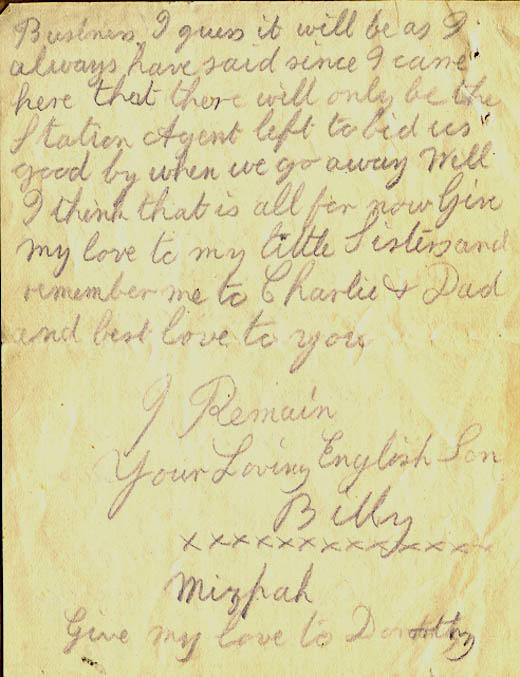 Business I guess it will be as I
always have said since I came
here that there will only be the
Station Agent left to bid us
good by when we go away Will
I think that is all for now Give
my love to my little Sisters and
remember me to Charlie & Dad
and best love to you
I Remain
Your Loving English Son
Billy
xxxxxxxxxxxxxx
Mizpah
Give my love to Dorothy